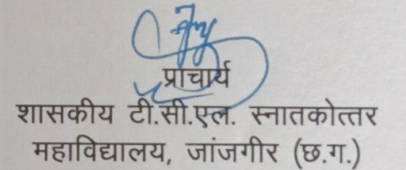 प्राचार्य
शासकीय टी.सी.एल. स्नातकोत्तर
महाविद्यालय, जांजगीर (छ.ग.)